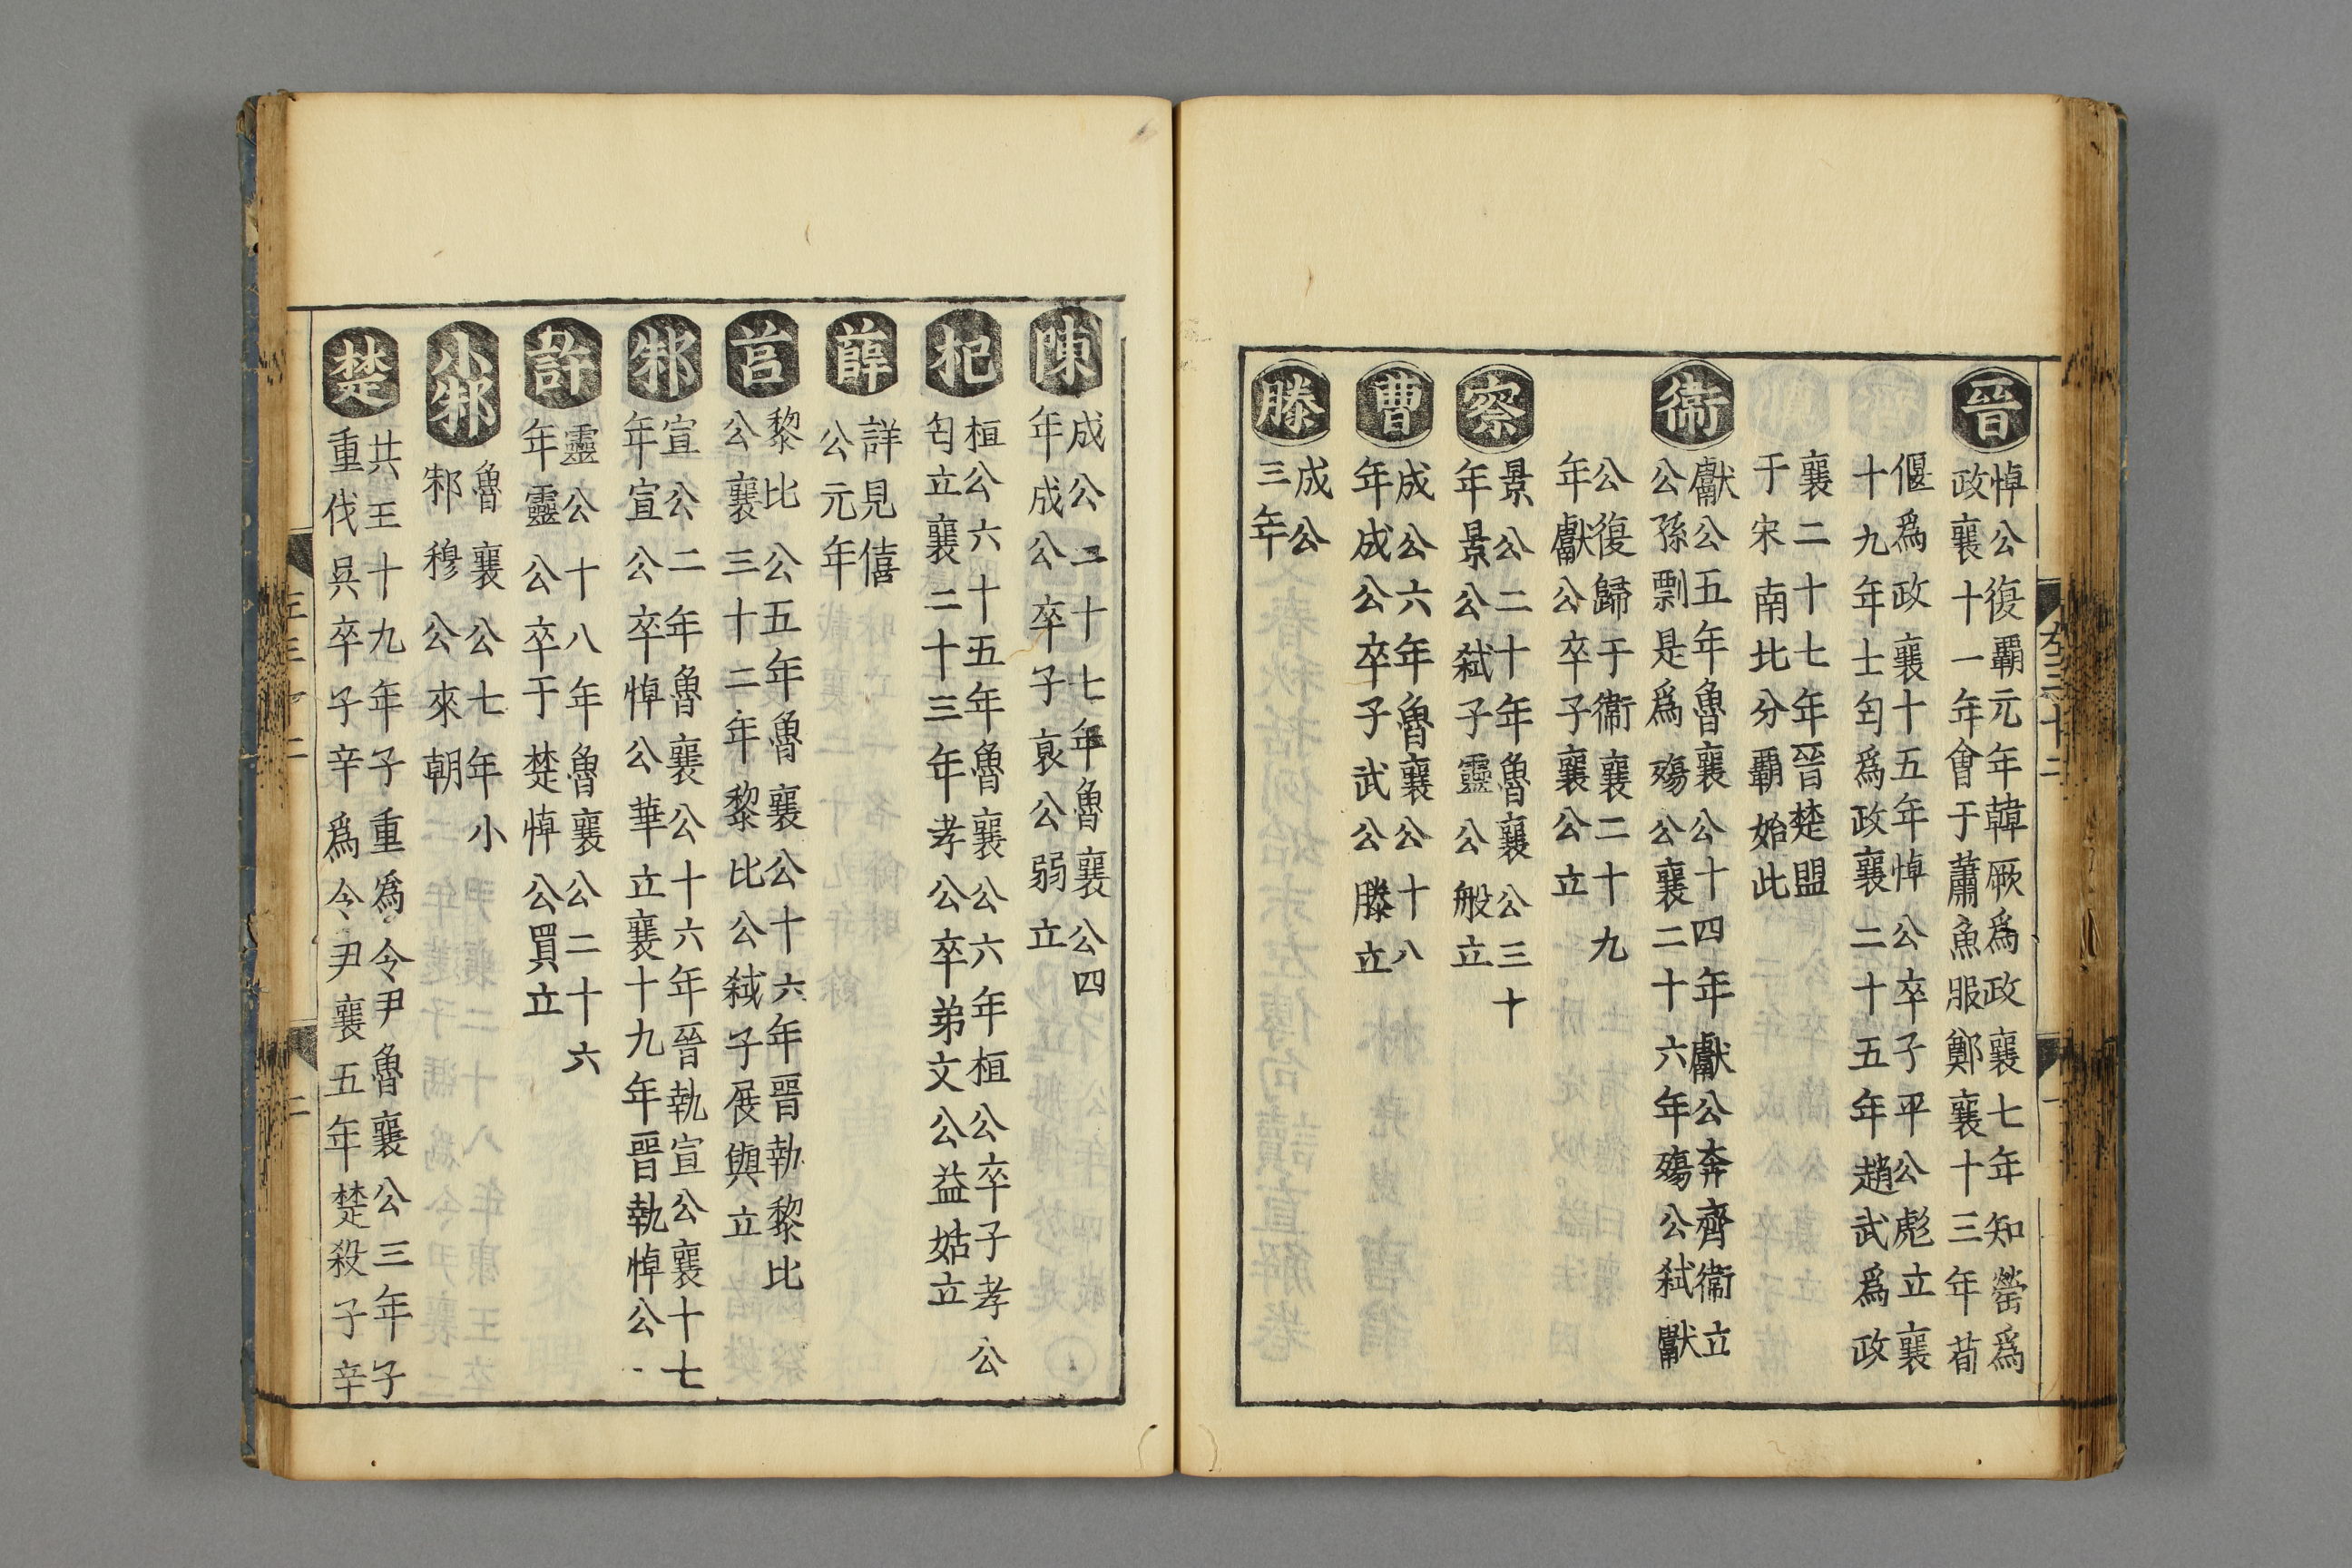 晉
悼公復霸元年韓厥爲政襄七年知罃爲
政襄十一年會于蕭魚服鄭襄十三年荀
偃爲政襄十五年悼公卒子平公彪立襄
十九年士匄爲政襄二十五年趙武爲政
襄二十七年晉楚盟
于宋南北分霸始此
衞
獻公五年魯襄公十四年獻公奔齊衞立
公孫剽是爲殤公襄二十六年殤公弑獻
公復歸于衞襄二十九
年獻公卒子襄公立
蔡
景公二十年魯襄公三十
年景公弑子靈公般立
曹
成公六年魯襄公十八
年成公卒子武公滕立
滕
成公
三年
陳
成公二十七年魯襄公四
年成公卒子哀公弱立
杞
桓公六十五年魯襄公六年桓公卒子孝公
匄立襄二十三年孝公卒弟文公益姑立
薛
詳見僖
公元年
莒
黎比公五年魯襄公十六年晉執黎比
公襄三十二年黎比公弑子展輿立
邾
宣公二年魯襄公十六年晉執宣公襄十七
年宣公卒悼公華立襄十九年晉執悼公
許
靈公十八年魯襄公二十六
年靈公卒于楚悼公買立
小邾
魯襄公七年小
邾穆公來朝
楚
共王十九年子重爲令尹魯襄公三年子
重伐吳卒子辛爲令尹襄五年楚殺子辛